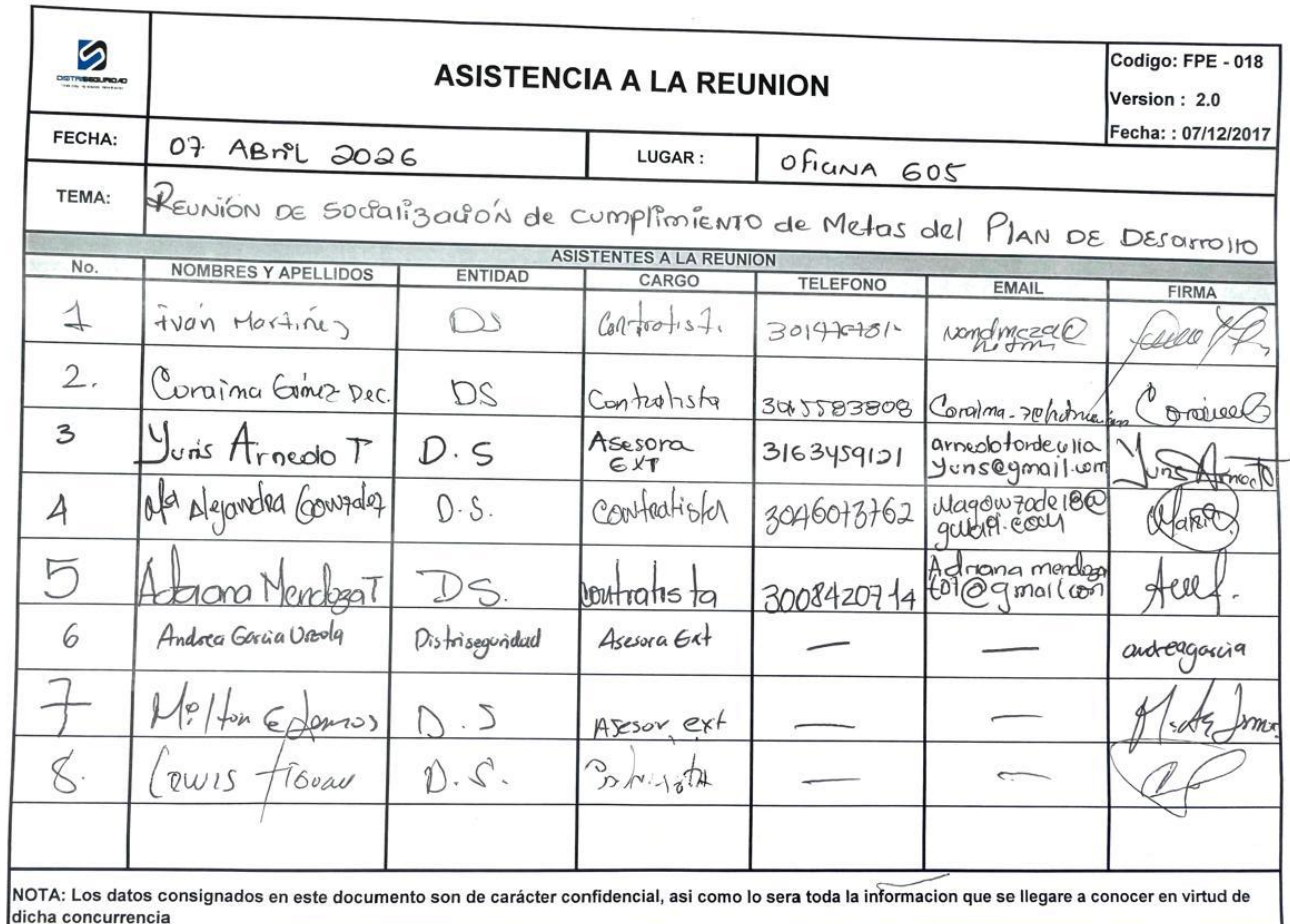 DISTRISEGURIDAD
ASISTENCIA A LA REUNION
Codigo: FPE - 018
Version : 2.0
Fecha: : 07/12/2017
FECHA: 07 ABril 2026 LUGAR : OficiNA 605
TEMA: REUNIÓN DE Socialización de cumplimiENTO de Metas del PlAN DE DEsarrollo
ASISTENTES A LA REUNION
No. NOMBRES Y APELLIDOS ENTIDAD CARGO TELEFONO EMAIL FIRMA
1 Iván Martínez DS Contratist.
2. Coraima Gómez Dec. DS Contratista
3 Yuris Arnedo T D.S Asesora EXT 3163459121 Yuris Arnedo T
4 Ma Alejandra González D.S. Contratista 3046073762 Maria
5 Adriana Mendoza T DS. contratista 3008420714 Adriana mendoza
t07@gmail.com
6 Andrea Garcia Urzola Distriseguridad Asesora Ext — — andreagarcia
7 Milton D.S Asesor ext — —
8. D.S. — —
NOTA: Los datos consignados en este documento son de carácter confidencial, asi como lo sera toda la informacion que se llegare a conocer en virtud de
dicha concurrencia